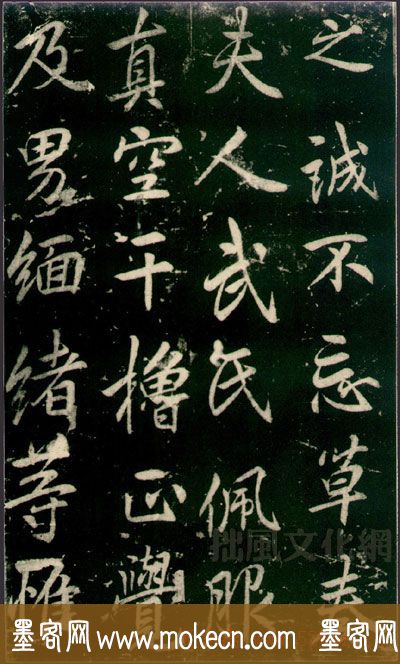 之誠不忘草
夫人武氏佩服
真空干櫓正覺
及男緬緒等雁
拙風文化網
墨客网 www.mokecn.com 墨客网